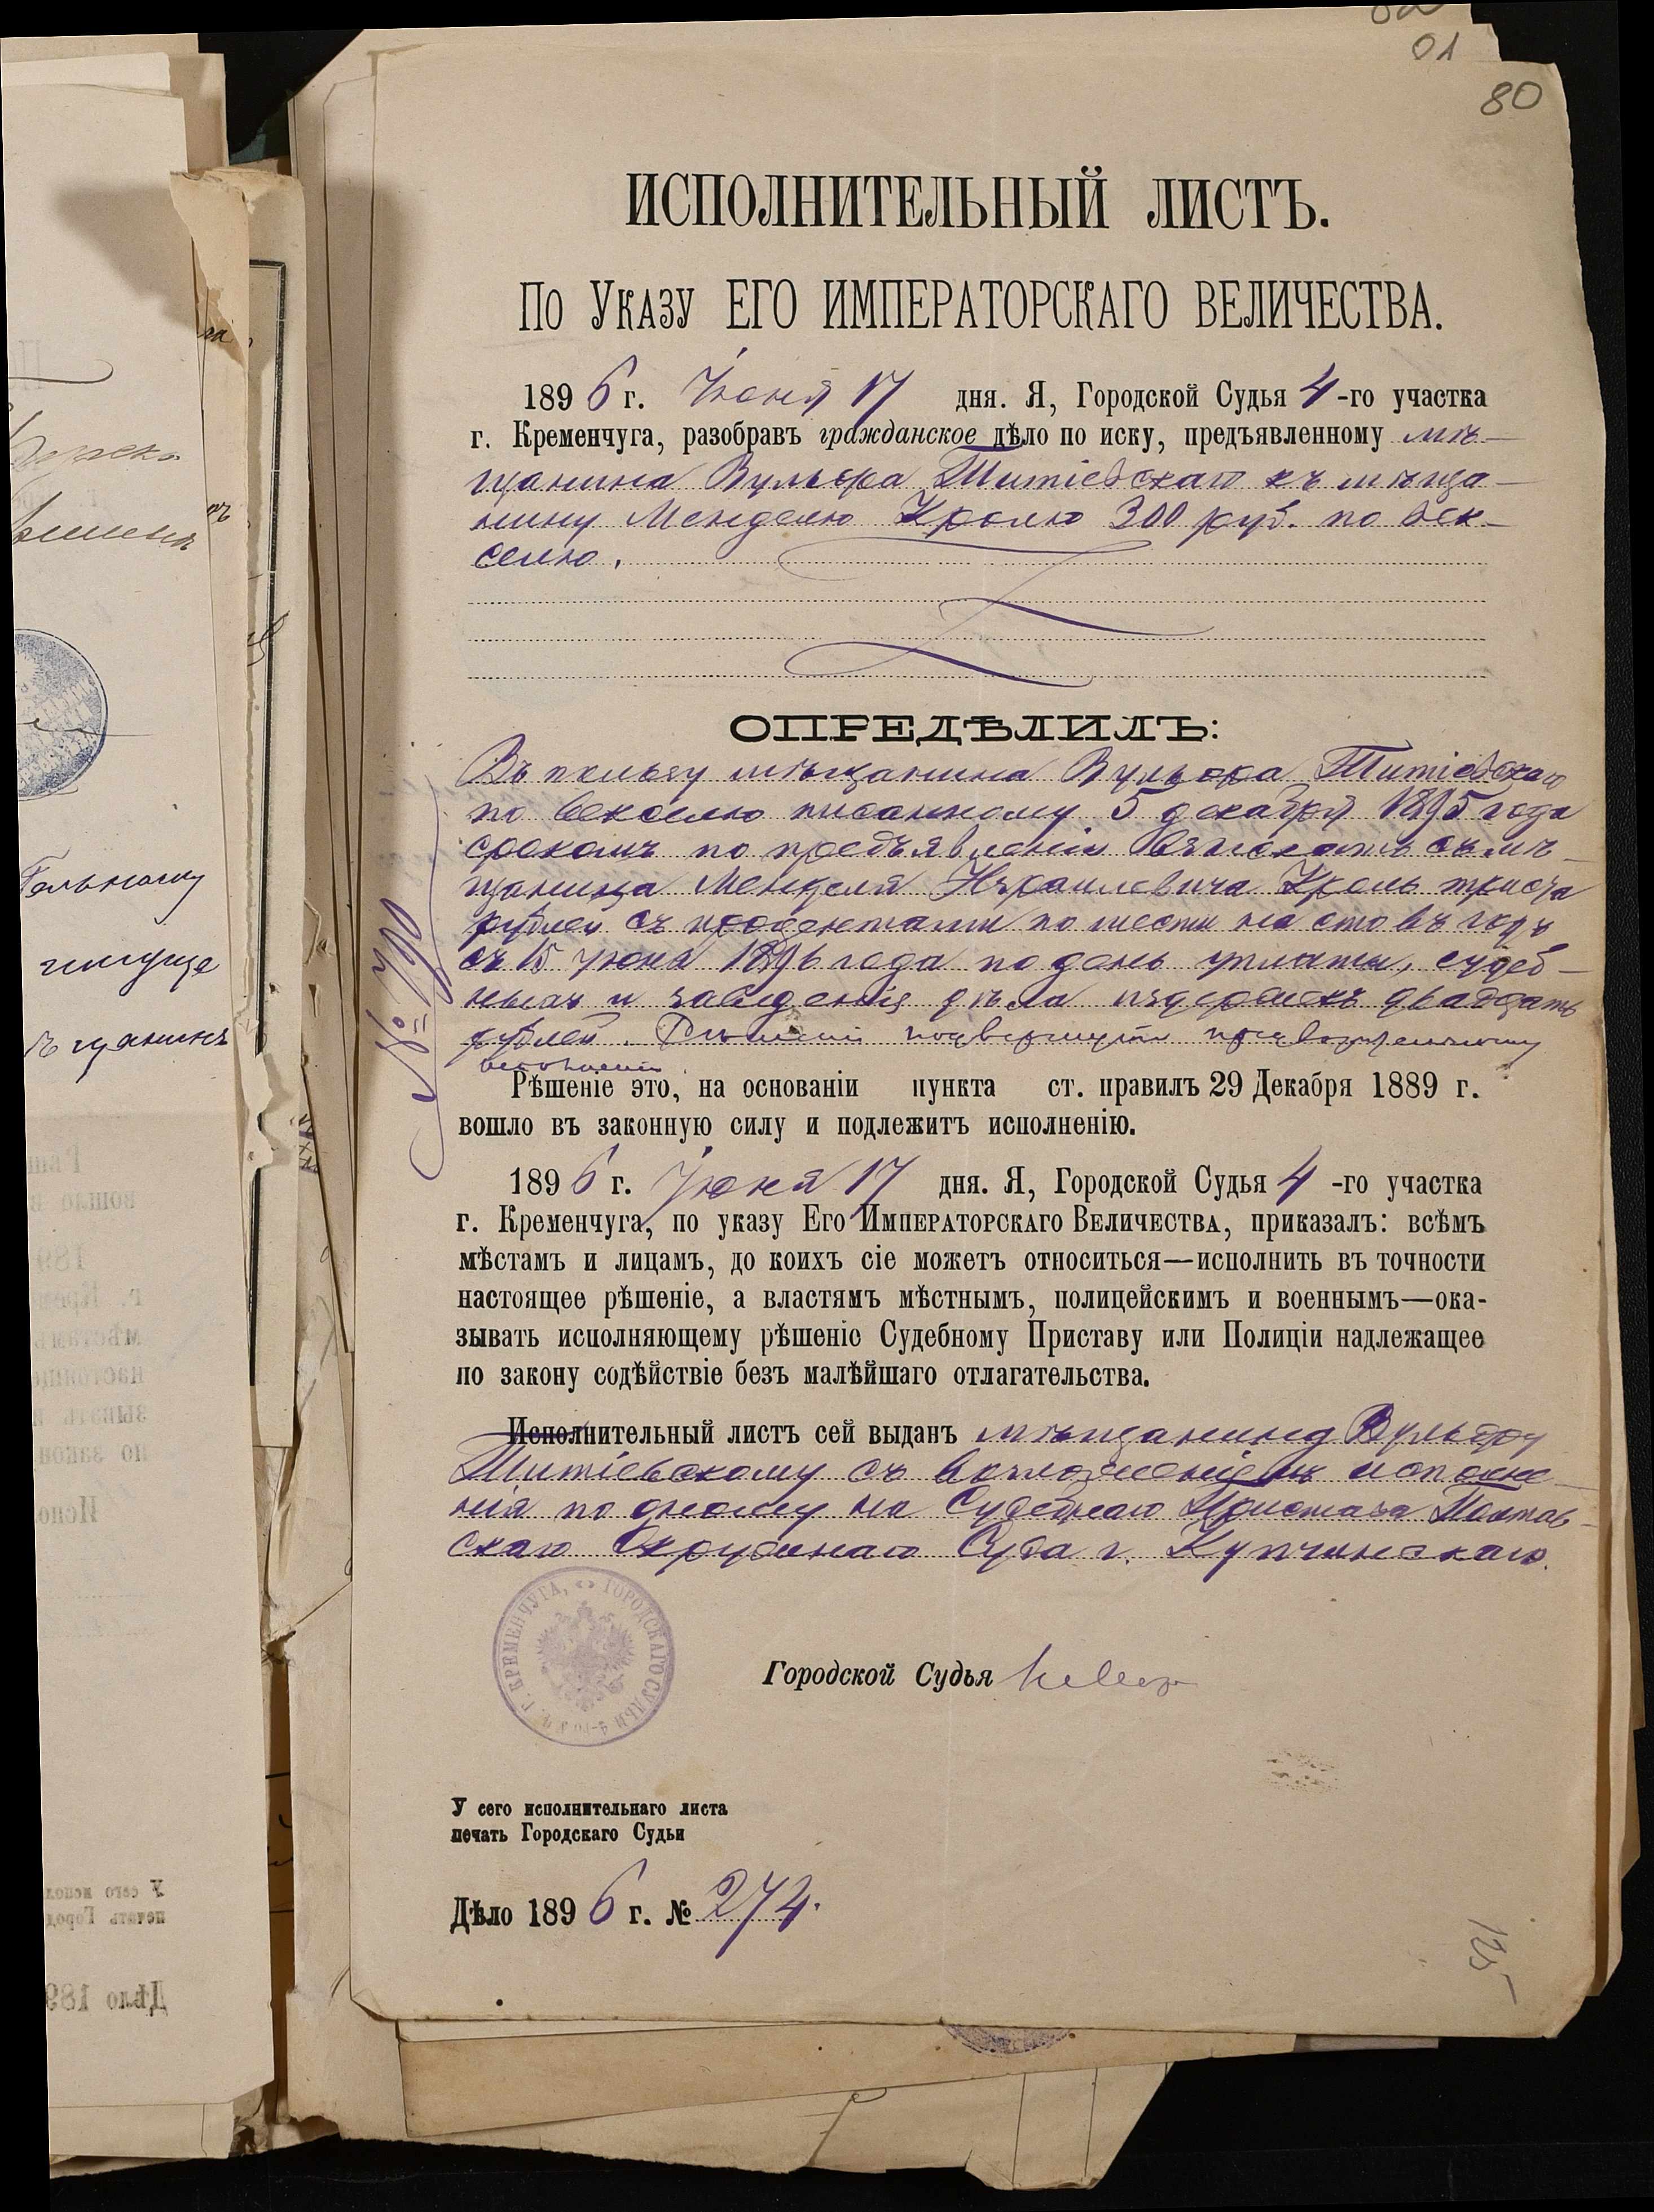 80
ИСПОЛНИТЕЛЬНЫЙ ЛИСТЪ.
По Указу ЕГО ИМПЕРАТОРСКАГО ВЕЛИЧЕСТВА.
1896 г. Июня 17 дня. Я, Городской Судья 4-го участка
г. Кременчуга, разобравъ гражданское дѣло по иску, предъявленному мѣ-
щанина Вульфа Титіевскаго къ мѣща-
нину Менделю Кролю 300 руб. по век-
селю.
ОПРЕДѢЛИЛЪ:
Въ пользу мѣщанина Вульфа Титіевскаго
по векселю писанному 5 декабря 1895 года
срокомъ по предъявленіи взыскать съ мѣ-
щанина Менделя Израилевича Кроль триста
рублей съ процентами по шести на сто въ годъ
съ 15 Июня 1896 года по день уплаты, судеб-
ныхъ и за веденіе дѣла издержекъ двадцать
рублей. Рѣшеніе подвергнуть предварительному
исполненію
Рѣшеніе это, на основаніи пункта ст. правилъ 29 Декабря 1889 г.
вошло въ законную силу и подлежитъ исполненію.
1896 г. Июня 17 дня. Я, Городской Судья 4-го участка
г. Кременчуга, по указу Его Императорскаго Величества, приказалъ: всѣмъ
мѣстамъ и лицамъ, до коихъ сіе можетъ относиться—исполнить въ точности
настоящее рѣшеніе, а властямъ мѣстнымъ, полицейскимъ и военнымъ—ока-
зывать исполняющему рѣшеніе Судебному Приставу или Полиціи надлежащее
по закону содѣйствіе безъ малѣйшаго отлагательства.
Исполнительный листъ сей выданъ мѣщанину Вульфу
Титіевскому съ возложеніемъ исполне-
нія по оному на Судебнаго Пристава Полтав-
скаго Окружнаго Суда г. Купчинскаго.
Г. КРЕМЕНЧУГА, ГОРОДСКАГО СУДЬИ 4-го уч.
Городской Судья
У сего исполнительнаго листа
печать Городскаго Судьи
Дѣло 1896 г. № 274.